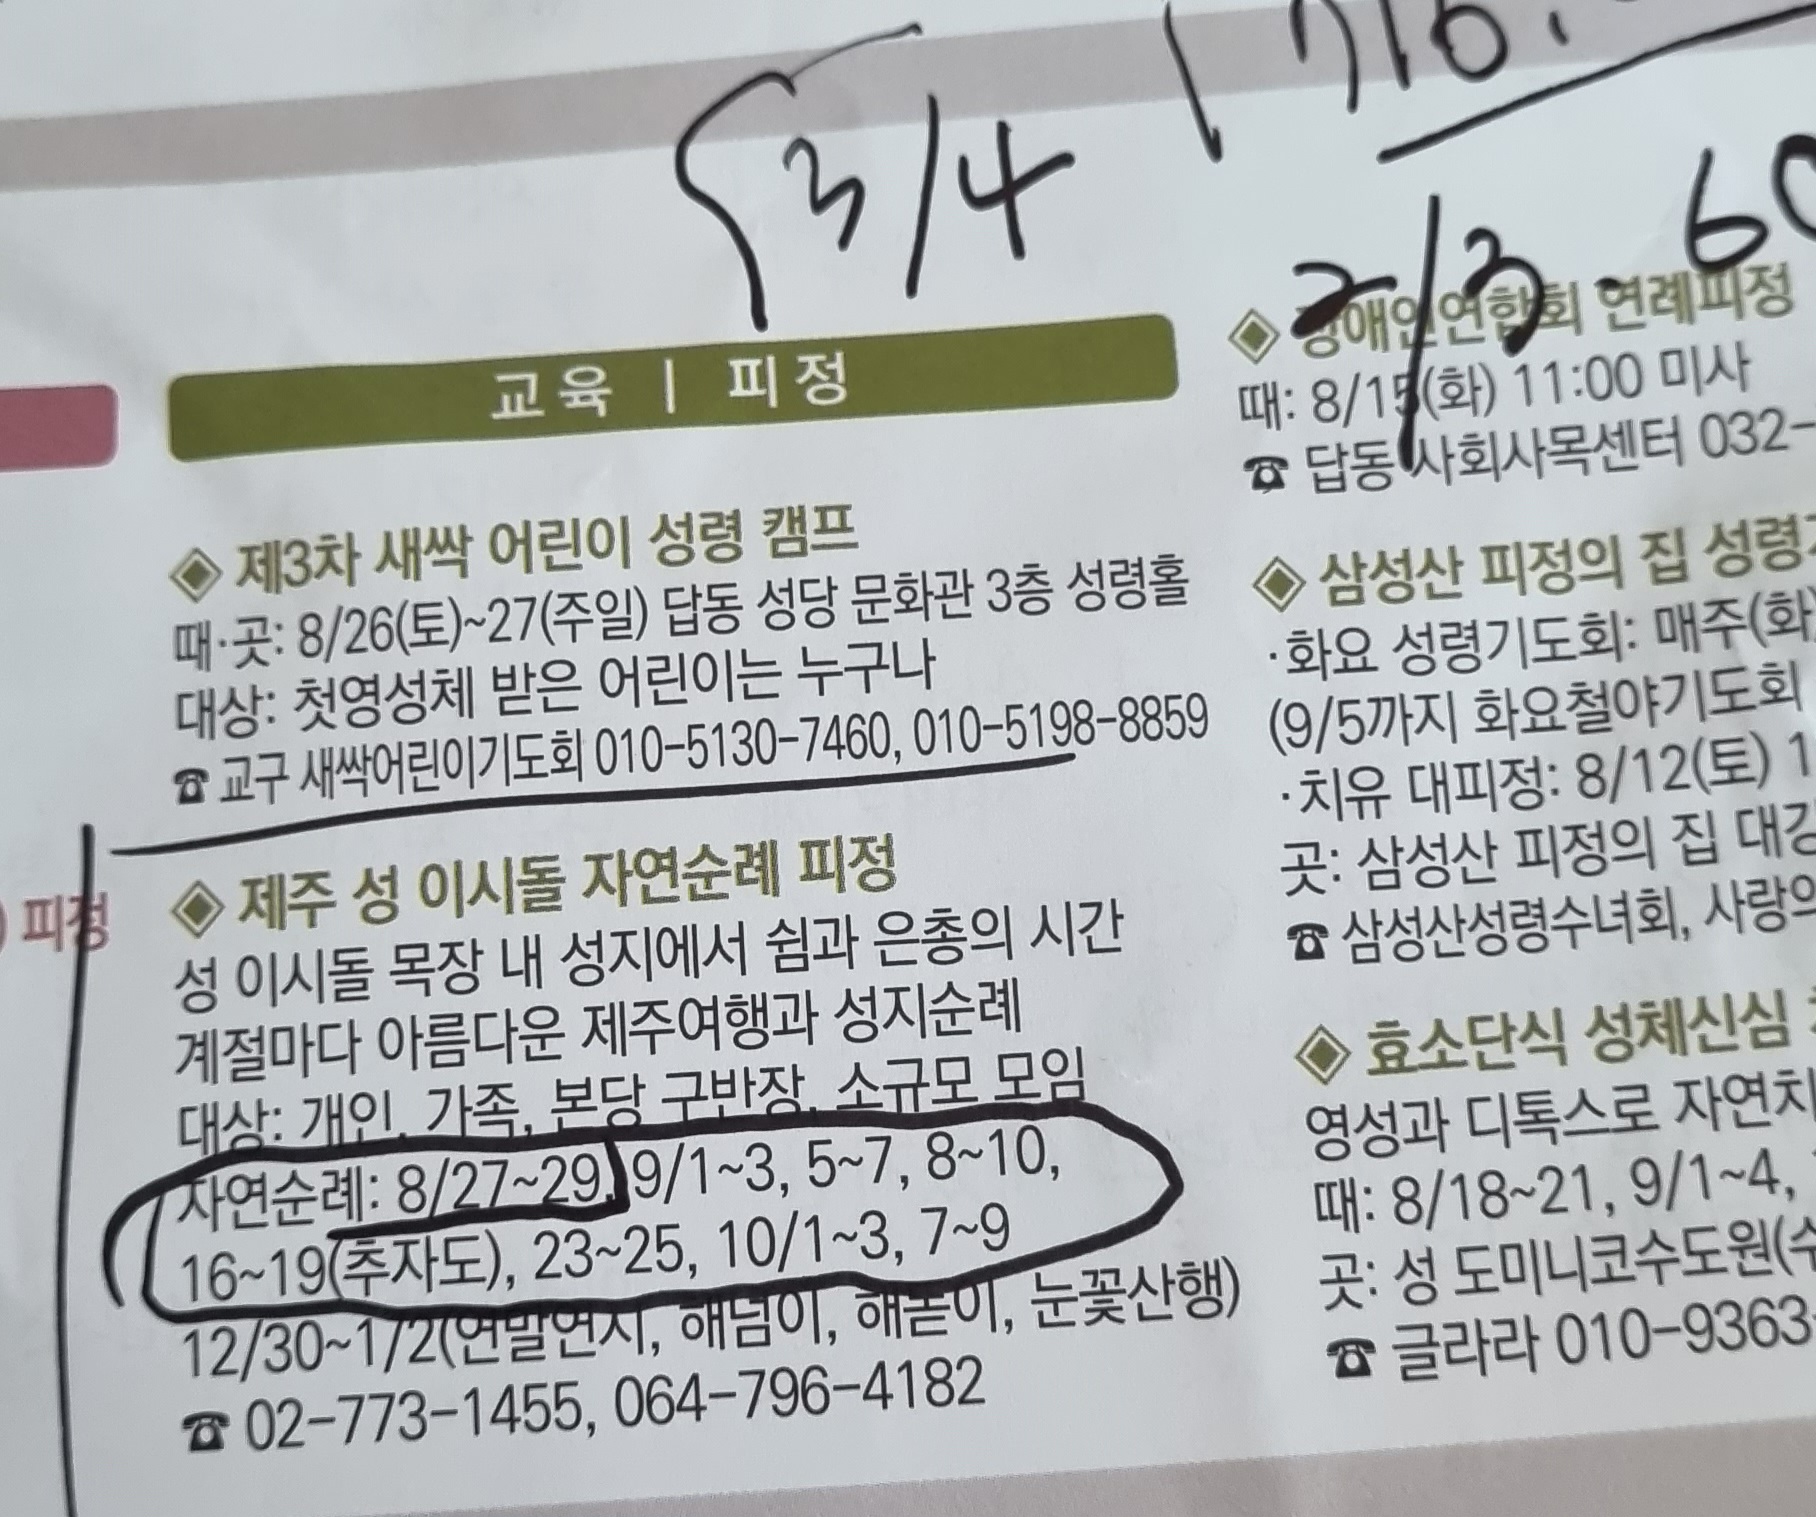 3/4
716.
2/3. 60
교육 | 피정
◈ 제3차 새싹 어린이 성령 캠프
때·곳: 8/26(토)~27(주일) 답동 성당 문화관 3층 성령홀
대상: 첫영성체 받은 어린이는 누구나
☎ 교구 새싹어린이기도회 010-5130-7460, 010-5198-8859
◈ 제주 성 이시돌 자연순례 피정
성 이시돌 목장 내 성지에서 쉼과 은총의 시간
계절마다 아름다운 제주여행과 성지순례
대상: 개인, 가족, 본당 구반장, 소규모 모임
자연순례: 8/27~29, 9/1~3, 5~7, 8~10,
16~19(추자도), 23~25, 10/1~3, 7~9
12/30~1/2(연말연시, 해넘이, 해돋이, 눈꽃산행)
☎ 02-773-1455, 064-796-4182
◈ 장애인연합회 연례피정
때: 8/15(화) 11:00 미사
☎ 답동 사회사목센터 032-
◈ 삼성산 피정의 집 성령
·화요 성령기도회: 매주(화)
(9/5까지 화요철야기도회
·치유 대피정: 8/12(토) 1
곳: 삼성산 피정의 집 대강
☎ 삼성산성령수녀회, 사랑의
◈ 효소단식 성체신심
영성과 디톡스로 자연치
때: 8/18~21, 9/1~4,
곳: 성 도미니코수도원(수
☎ 글라라 010-9363-
) 피정